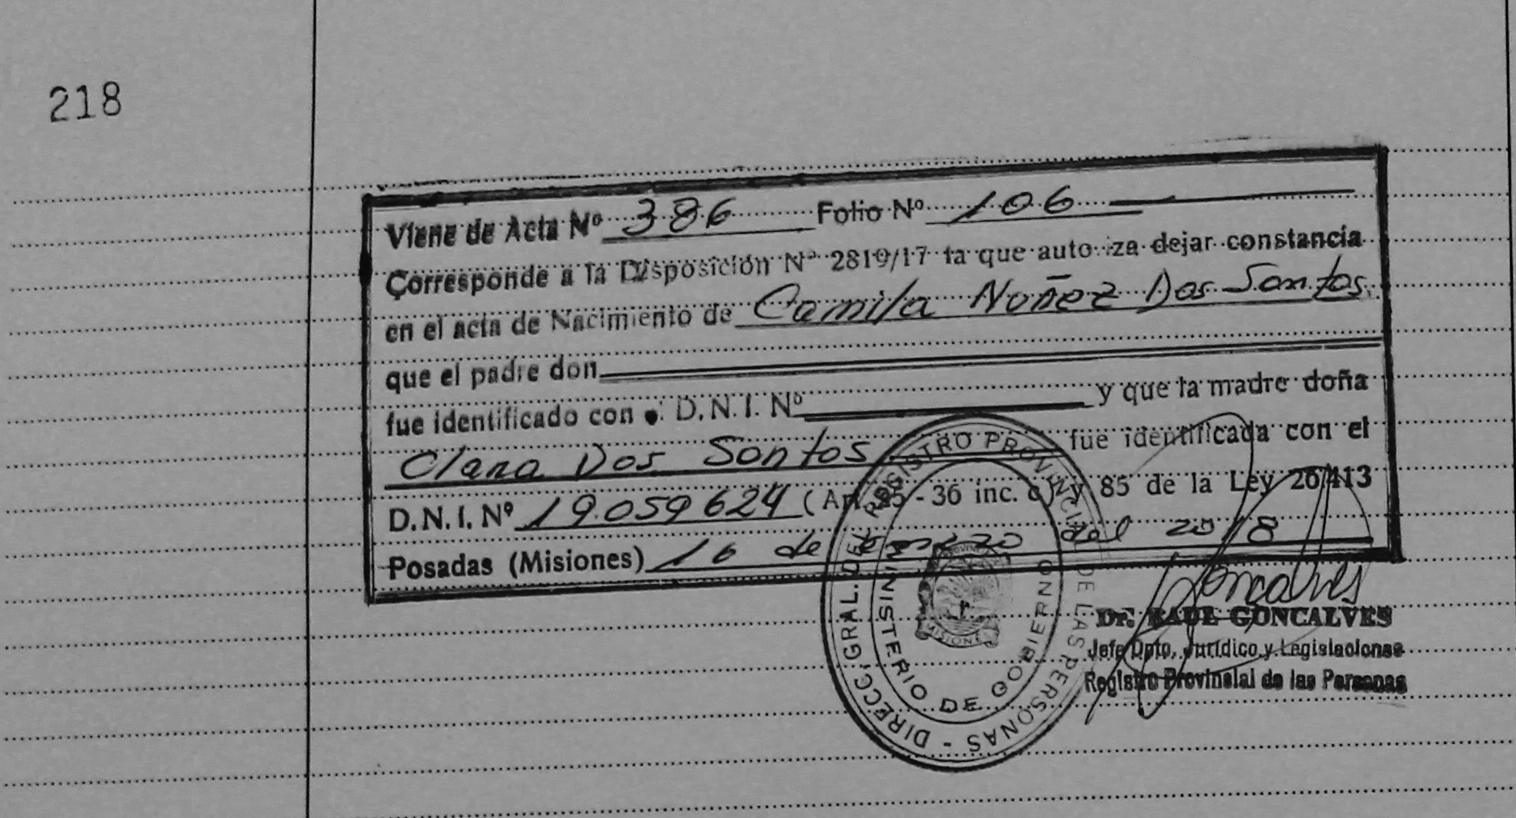 218
Viene de Acta Nº 386 Folio Nº 106
Corresponde a la Disposición Nº 2819/17 la que autoriza dejar constancia
en el acta de Nacimiento de Camila Noñez Dos Santos
que el padre don
fue identificado con D.N.I. Nº y que la madre doña
Clara Dos Santos fue identificada con el
D.N.I. Nº 19.059624 (Art. 35 - 36 inc. c) y 85 de la Ley 26413
Posadas (Misiones) 16 de del 2018
DIRECC. GRAL. DEL REGISTRO PROVINCIAL DE LAS PERSONAS -
MINISTERIO DE GOBIERNO
MISIONES
Goncalves
Dr. RAUL GONCALVES
Jefe Dpto. Jurídico y Legislaciones
Registro Provincial de las Personas